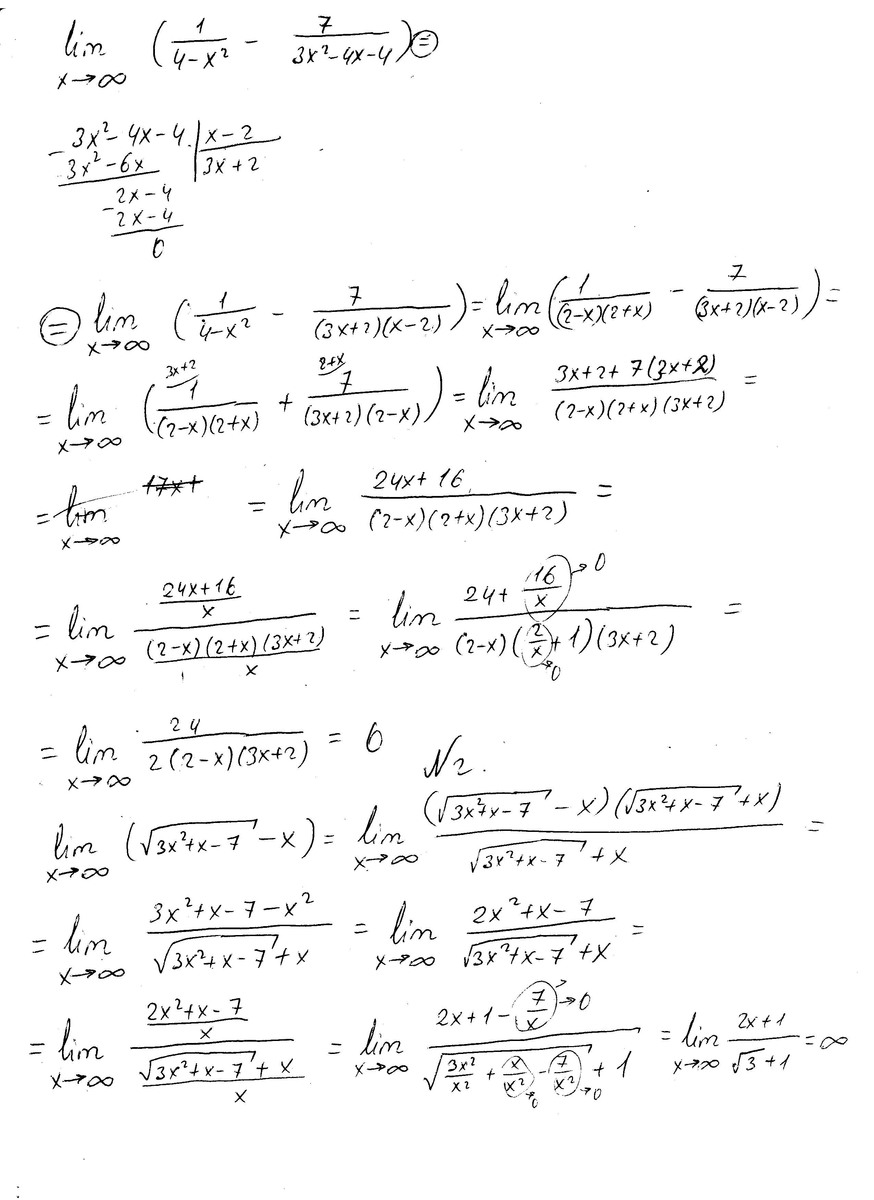 lim x→∞ (1/(4-x²) - 7/(3x²-4x-4)) ⊜
3x²-4x-4 | x-2
-3x²-6x | 3x+2
2x-4
-2x-4
0
⊜ lim x→∞ (1/(4-x²) - 7/((3x+2)(x-2))) = lim x→∞ (1/((2-x)(2+x)) - 7/((3x+2)(x-2))) =
= lim x→∞ (3x+2⏝ 1/((2-x)(2+x)) + 2+x⏝ 7/((3x+2)(2-x))) = lim x→∞ (3x+2+7(3x+2))/((2-x)(2+x)(3x+2)) =
= lim x→∞ 17x+ = lim x→∞ (24x+16)/((2-x)(2+x)(3x+2)) =
= lim x→∞ ((24x+16)/x)/(((2-x)(2+x)(3x+2))/x) = lim x→∞ (24+16/x→0)/((2-x)(2/x→0+1)(3x+2)) =
= lim x→∞ 24/(2(2-x)(3x+2)) = 0
N2.
lim x→∞ (√(3x²+x-7) - x) = lim x→∞ ((√(3x²+x-7) - x)(√(3x²+x-7) + x))/(√(3x²+x-7) + x) =
= lim x→∞ (3x²+x-7-x²)/(√(3x²+x-7) + x) = lim x→∞ (2x²+x-7)/(√(3x²+x-7) + x) =
= lim x→∞ ((2x²+x-7)/x)/((√(3x²+x-7) + x)/x) = lim x→∞ (2x+1-7/x→0)/(√(3x²/x² + x/x²→0 - 7/x²→0) + 1) = lim x→∞ (2x+1)/(√3+1) = ∞